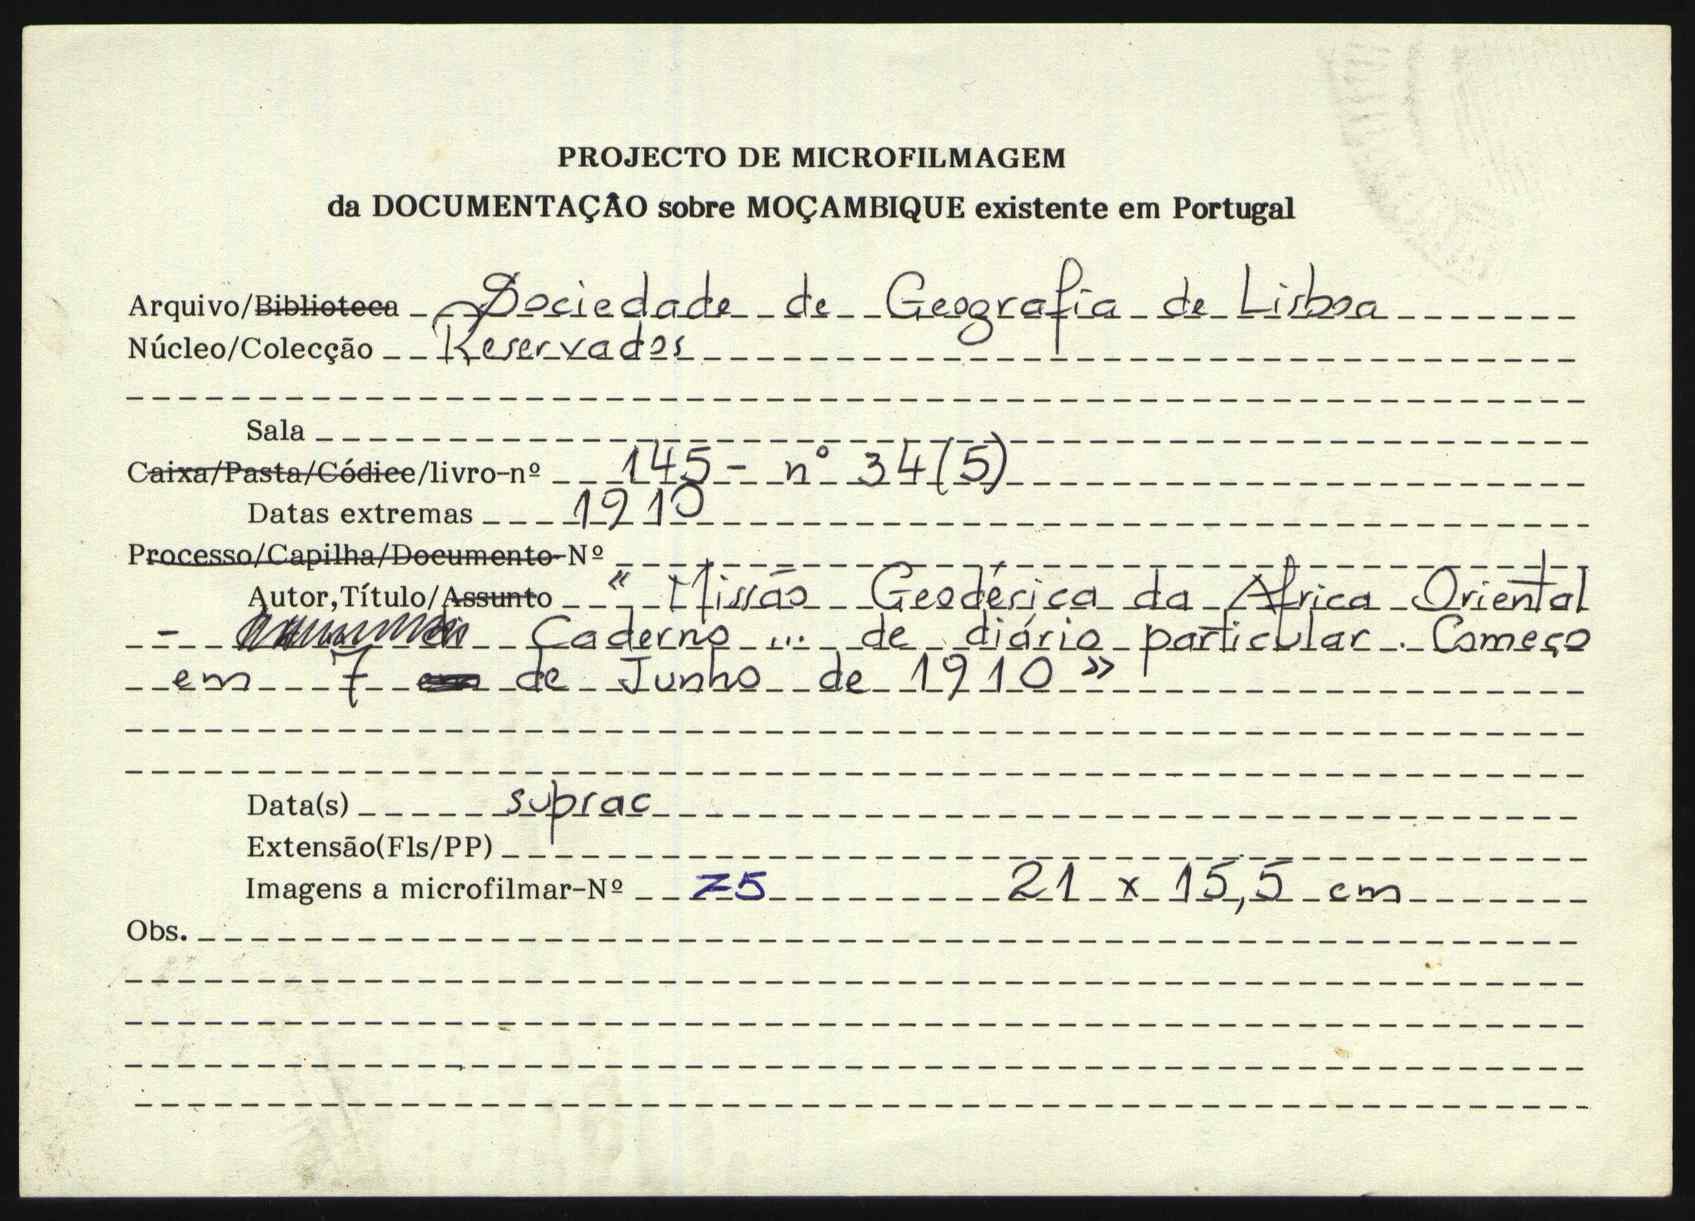 PROJECTO DE MICROFILMAGEM
da DOCUMENTAÇÃO sobre MOÇAMBIQUE existente em Portugal
Arquivo/Biblioteca Sociedade de Geografia de Lisboa
Núcleo/Colecção Reservados
Sala
Caixa/Pasta/Códice/livro-nº 145 - nº 34(5)
Datas extremas 1910
Processo/Capilha/Documento-Nº
Autor,Título/Assunto « Missão Geodésica da África Oriental
- Caderno ... de diário particular. Começo
em 7 de Junho de 1910 »
Data(s) suprac
Extensão(Fls/PP)
Imagens a microfilmar-Nº 75 21 x 15,5 cm
Obs.